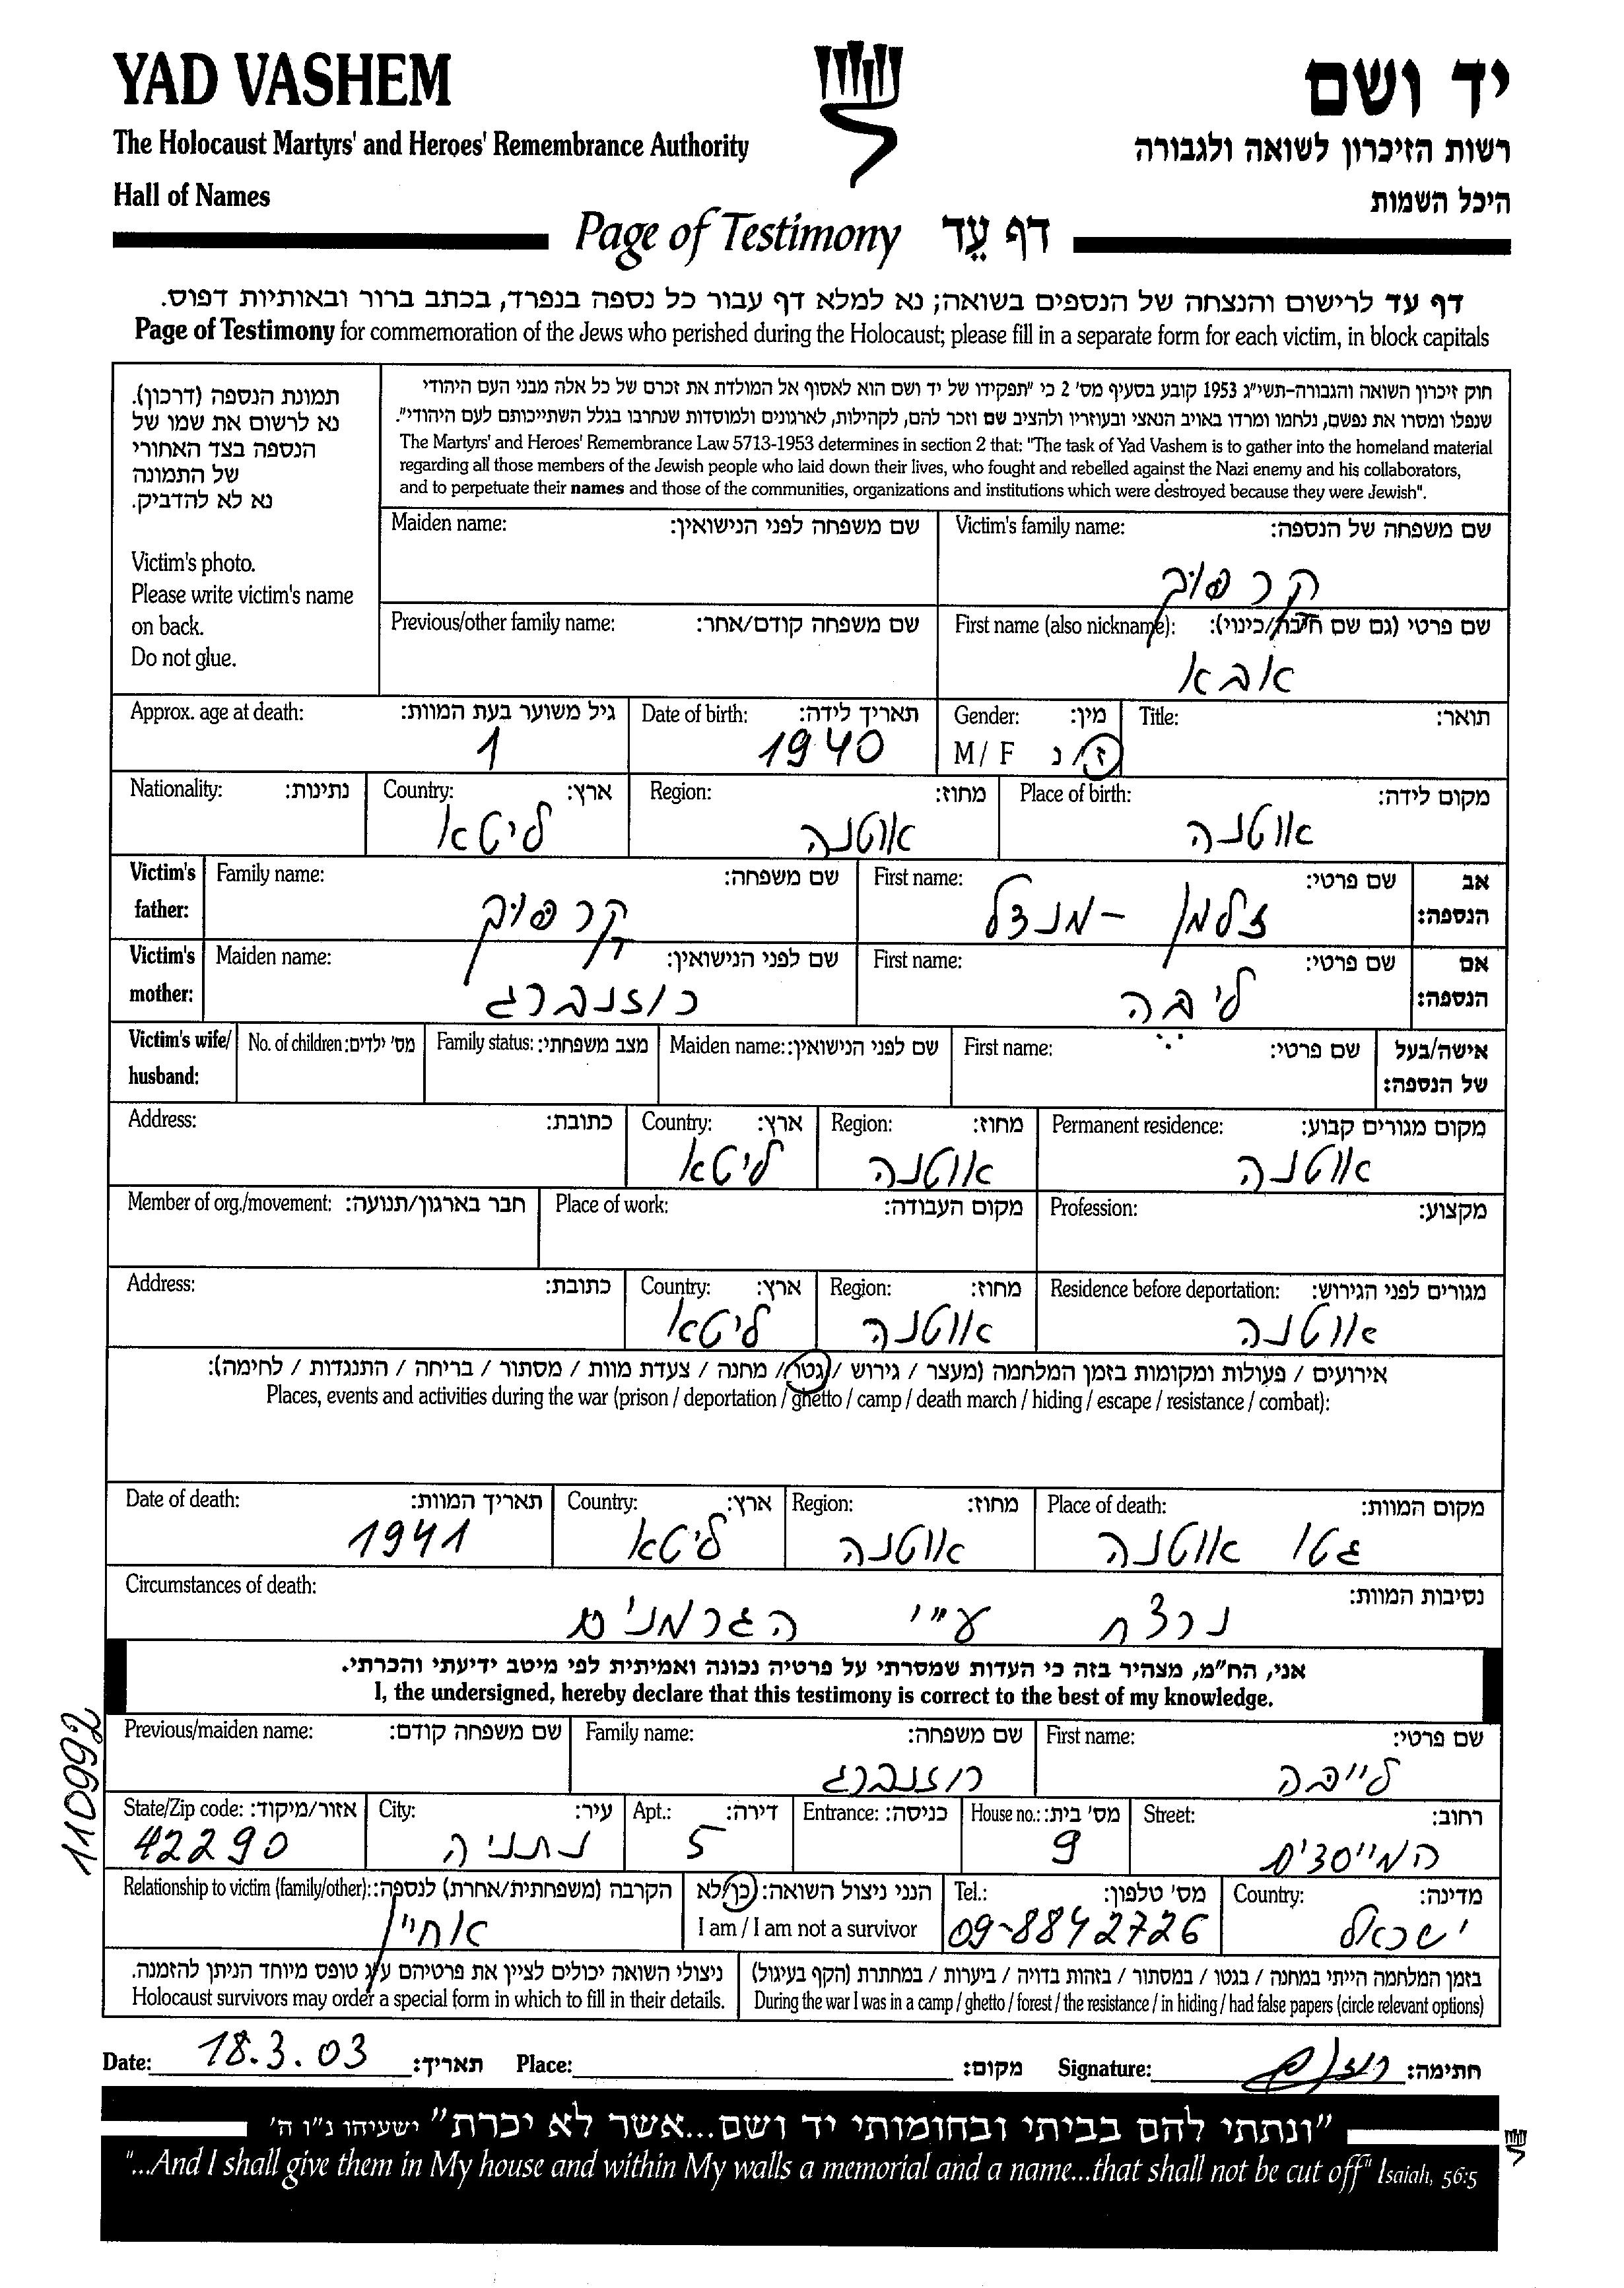 YAD VASHEM
יד ושם
The Holocaust Martyrs' and Heroes' Remembrance Authority
רשות הזיכרון לשואה ולגבורה
Hall of Names
היכל השמות
Page of Testimony דף עֵד
דף עד לרישום והנצחה של הנספים בשואה; נא למלא דף עבור כל נספה בנפרד, בכתב ברור ובאותיות דפוס.
Page of Testimony for commemoration of the Jews who perished during the Holocaust; please fill in a separate form for each victim, in block capitals
תמונת הנספה (דרכון).
נא לרשום את שמו של
הנספה בצד האחורי
של התמונה
נא לא להדביק.
Victim's photo.
Please write victim's name
on back.
Do not glue.
חוק זיכרון השואה והגבורה-תשי"ג 1953 קובע בסעיף מס' 2 כי "תפקידו של יד ושם הוא לאסוף אל המולדת את זכרם של כל אלה מבני העם היהודי
שנפלו ומסרו את נפשם, נלחמו ומרדו באויב הנאצי ובעוזריו ולהציב שם וזכר להם, לקהילות, לארגונים ולמוסדות שנחרבו בגלל השתייכותם לעם היהודי".
The Martyrs' and Heroes' Remembrance Law 5713-1953 determines in section 2 that: "The task of Yad Vashem is to gather into the homeland material
regarding all those members of the Jewish people who laid down their lives, who fought and rebelled against the Nazi enemy and his collaborators,
and to perpetuate their names and those of the communities, organizations and institutions which were destroyed because they were Jewish".
Victim's family name: שם משפחה של הנספה:
קרפוב
Maiden name: שם משפחה לפני הנישואין:
First name (also nickname): שם פרטי (גם שם חיבה/כינוי):
אבא
Previous/other family name: שם משפחה קודם/אחר:
Title: תואר:
Gender: מין:
M / F ז/נ
Date of birth: תאריך לידה:
1940
Approx. age at death: גיל משוער בעת המוות:
1
Place of birth: מקום לידה:
אוטנה
Region: מחוז:
אוטנה
Country: ארץ:
ליטא
Nationality: נתינות:
Victim's father: אב הנספה:
First name: שם פרטי:
זלמן - מנדל
Family name: שם משפחה:
קרפוב
Victim's mother: אם הנספה:
First name: שם פרטי:
ליבה
Maiden name: שם לפני הנישואין:
רוזנברג
Victim's wife/husband: אישה/בעל של הנספה:
First name: שם פרטי:
Maiden name: שם לפני הנישואין:
Family status: מצב משפחתי:
No. of children: מס' ילדים:
Permanent residence: מקום מגורים קבוע:
אוטנה
Region: מחוז:
אוטנה
Country: ארץ:
ליטא
Address: כתובת:
Profession: מקצוע:
Place of work: מקום העבודה:
Member of org./movement: חבר בארגון/תנועה:
Residence before deportation: מגורים לפני הגירוש:
אוטנה
Region: מחוז:
אוטנה
Country: ארץ:
ליטא
Address: כתובת:
אירועים / פעולות ומקומות בזמן המלחמה (מעצר / גירוש / גטו / מחנה / צעדת מוות / מסתור / בריחה / התנגדות / לחימה):
Places, events and activities during the war (prison / deportation / ghetto / camp / death march / hiding / escape / resistance / combat):
Place of death: מקום המוות:
גטו אוטנה
Region: מחוז:
אוטנה
Country: ארץ:
ליטא
Date of death: תאריך המוות:
1941
Circumstances of death: נסיבות המוות:
נרצח ע"י הגרמנים
אני, הח"מ, מצהיר בזה כי העדות שמסרתי על פרטיה נכונה ואמיתית לפי מיטב ידיעתי והכרתי.
I, the undersigned, hereby declare that this testimony is correct to the best of my knowledge.
110992
First name: שם פרטי:
לייבה
Family name: שם משפחה:
רוזנברג
Previous/maiden name: שם משפחה קודם:
Street: רחוב:
המייסדים
House no.: מס' בית:
9
Entrance: כניסה:
Apt.: דירה:
5
City: עיר:
נתניה
State/Zip code: אזור/מיקוד:
42290
Country: מדינה:
ישראל
Tel.: מס' טלפון:
09-8842726
הנני ניצול השואה: כן/לא
I am / I am not a survivor
Relationship to victim (family/other): הקרבה (משפחתית/אחרת) לנספה:
אחיין
בזמן המלחמה הייתי במחנה / בגטו / במסתור / בזהות בדויה / ביערות / במחתרת (הקף בעיגול)
During the war I was in a camp / ghetto / forest / the resistance / in hiding / had false papers (circle relevant options)
ניצולי השואה יכולים לציין את פרטיהם ע"ג טופס מיוחד הניתן להזמנה.
Holocaust survivors may order a special form in which to fill in their details.
Date: 18.3.03 תאריך: Place: מקום: Signature: חתימה:
"ונתתי להם בביתי ובחומותי יד ושם...אשר לא יכרת" ישעיהו נ"ו ה'
"...And I shall give them in My house and within My walls a memorial and a name...that shall not be cut off" Isaiah, 56:5